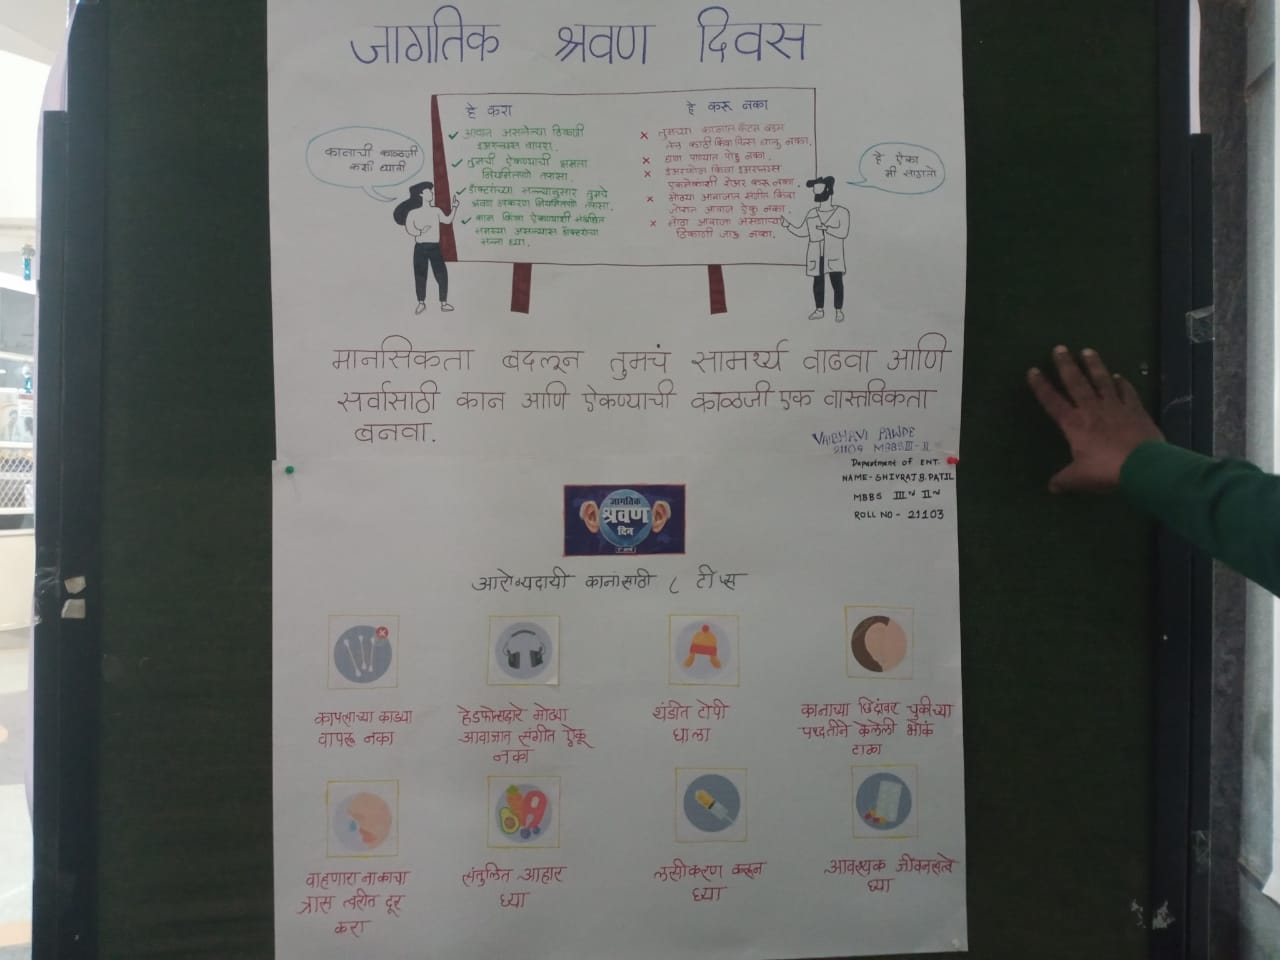 जागतिक श्रवण दिवस
कानाची काळजी
कशी घ्यावी
हे करा
आवाज असलेल्या ठिकाणी
इअरप्लग्स वापरा.
तुमची ऐकण्याची क्षमता
नियमितपणे तपासा.
डॉक्टरांच्या सल्ल्यानुसार तुमचे
श्रवण उपकरण नियमितपणे तपासा.
कान किंवा ऐकण्याशी संबंधित
समस्या असल्यास डॉक्टरांचा
सल्ला घ्या.
हे करू नका
तुमच्या कानात कॉटन बड्स
तेल काठी किंवा पिन्स घालू नका.
घाण पाण्यात पोहू नका.
इअरफोन किंवा इअरप्लग्स
एकमेकांशी शेअर करू नका.
मोठ्या आवाजात संगीत किंवा
जोरात आवाज ऐकू नका.
मोठा आवाज असणाऱ्या
ठिकाणी जाऊ नका.
हे ऐका
मी सांगतो
मानसिकता बदलून तुमचं सामर्थ्य वाढवा आणि
सर्वांसाठी कान आणि ऐकण्याची काळजी एक वास्तविकता
बनवा.
VAIBHAVI PAWDE
21109 MBBS III-II
Department of ENT.
NAME- SHIVRAJ B. PATIL
MBBS IIIrd IInd
ROLL NO - 21103
जागतिक
श्रवण
दिन
आरोग्यदायी कानांसाठी ८ टीप्स
कापसाच्या काड्या
वापरू नका
हेडफोनद्वारे मोठ्या
आवाजात संगीत ऐकू
नका
थंडीत टोपी
घाला
कानाच्या छिद्रांवर चुकीच्या
पध्दतीने केलेली भोकं
टाळा
वाहणारा नाकाचा
त्रास त्वरीत दूर
करा
संतुलित आहार
घ्या
लसीकरण करून
घ्या
आवश्यक जीवनसत्वे
घ्या